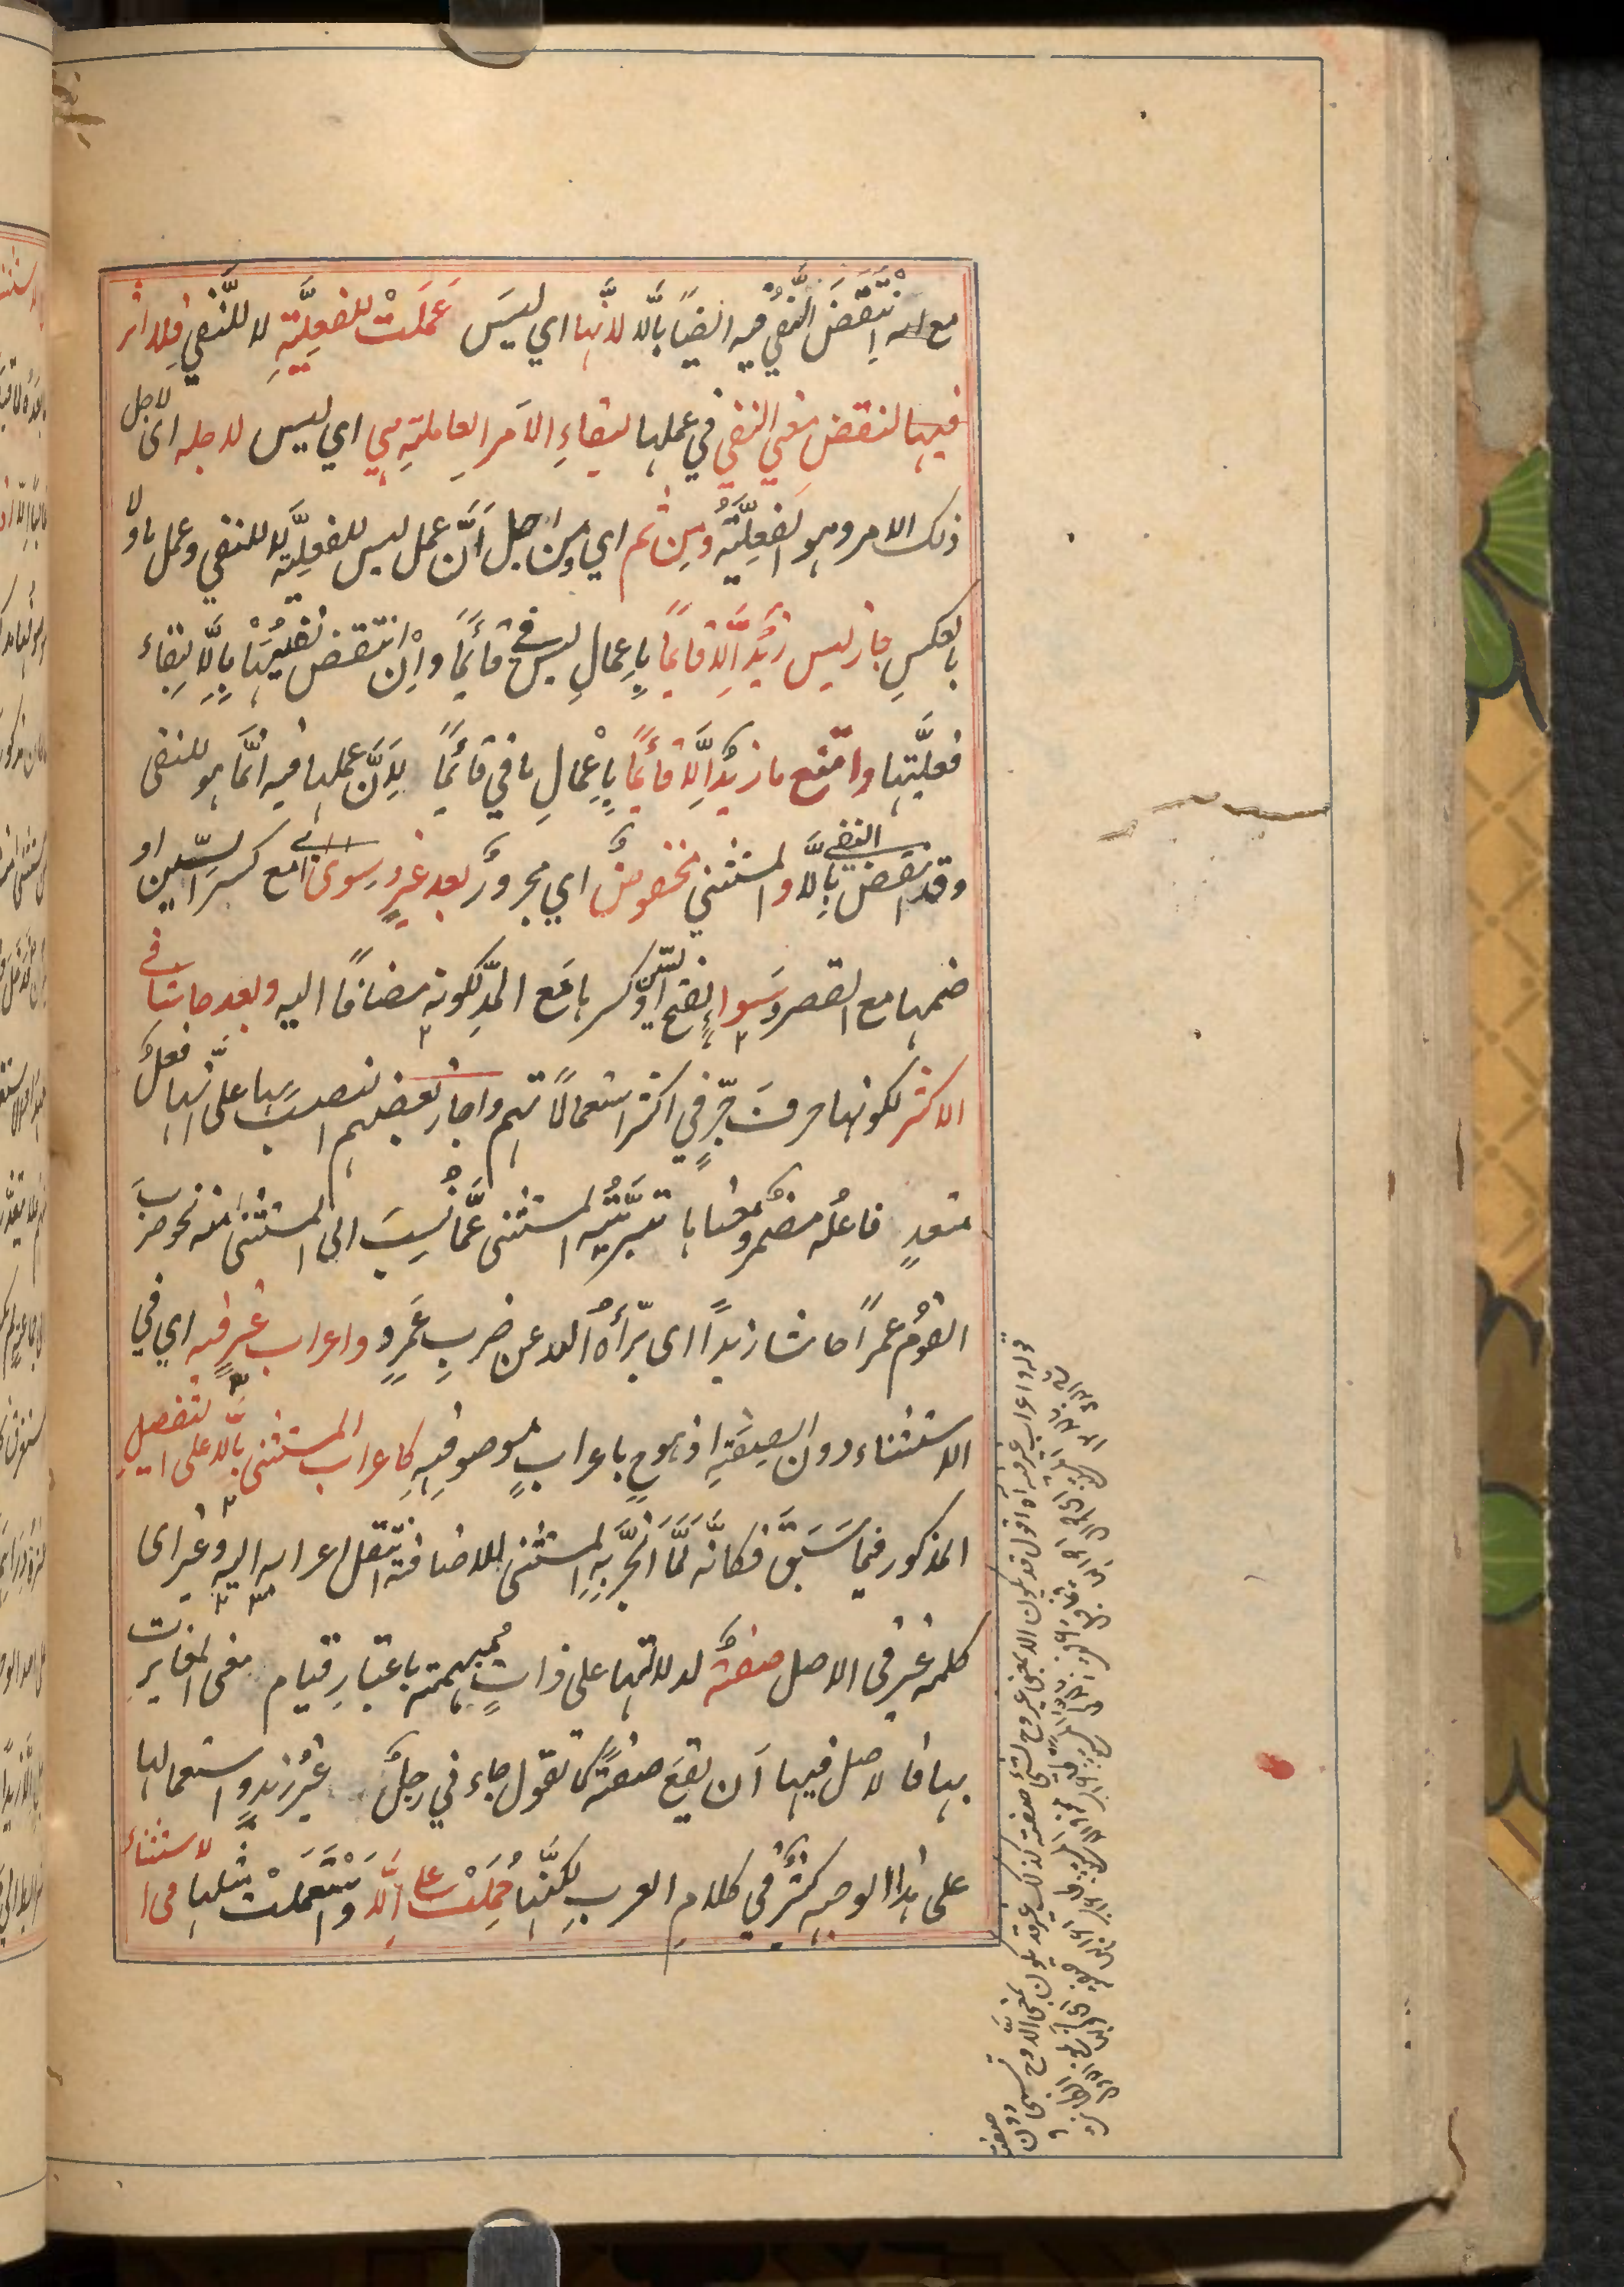 مع انه اِنْتَقَضَ النَّفْيُ فيه ايضًا بالّا لانّها اي ليسَ عَمِلَتْ للفِعلِيَّةِ لا للنَّفْيِ فلا اثر
فيها لنقضِ معنى النفي في عملها لبقاءِ الاَمرِ العاملةِ هي اي ليس لاجله اى لاجل
ذلك الامر وهو الفعلِيَّةُ ومِن ثم اي ومن اجل اَنَّ عمل ليس للفعلِيَّةِ لا للنفي وعمل ما ولا
بالعكسِ جاز ليس زيدٌ اِلّا قائمًا بِاِعمالِ ليس في قائمًا واِنِ انْتقض نفيُها بِالّا لِبقاء
فعلِيَّتِها وامتنع ما زيدٌ اِلّا قائمًا بِاِعْمالِ ما في قائمًا لِاَنَّ عملها فيه انّما هو للنفى
وقد انتقض النفى بِالّا والمستثنى مخفوضٌ اي مجرورٌ بعد غيرٍ وسِوى مع كسر السّين او
ضمها مع القصر وسَواءٍ بفتح السين او كسرها مَع المدِّ لكونه مضافًا اليه وبعد حاشا في
الاكثر لكونها حرفَ جرٍّ في اكثر استعمالاتهم واجاز بعضهم النصبَ بها على انّها فعلٌ
متعدٍ فاعلُه مضمرٌ ومعناها تبرِّئةُ المستثنى عمَّا نُسِبَ الى المستثنى منه نحو ضربَ
القومُ عمرًا حاشا زيدًا اى برّأهُ الله عن ضربِ عَمرٍو واعراب غيرٍ فيه اي في
الاستثناء دون الصِفَةِ اذ هو ح باعراب موصوفِهِ كاعراب المستثنى بالّا على التفصيلِ
المذكور فيما سَبَقَ فكانَّه لَمَّا انْجَرَّ بِهِ المستثنى للاضافة انتقل اعرابه اليه وغير اى
كلمه غير فى الاصل صفةٌ لدلالتها على ذاتٍ مُبهمةٍ باعتبارِ قيام معنى المغايرت
بها فالاصل فيها اَن تقعَ صفةً كما تقول جاءني رجلٌ غيرُ زيدٍ واستعمالها
على هذا الوجه كثيرٌ في كلامِ العربِ لكنّها حُمِلَتْ على اِلّا وَاسْتُعمِلَتْ مثلها فى الاستثناء
قوله واعراب غير فيه اه اقول قد يكون الا بمعنى غير وح تسمى صفة كذلك غير قد يكون بمعنى الا وح تسمى دون صفة